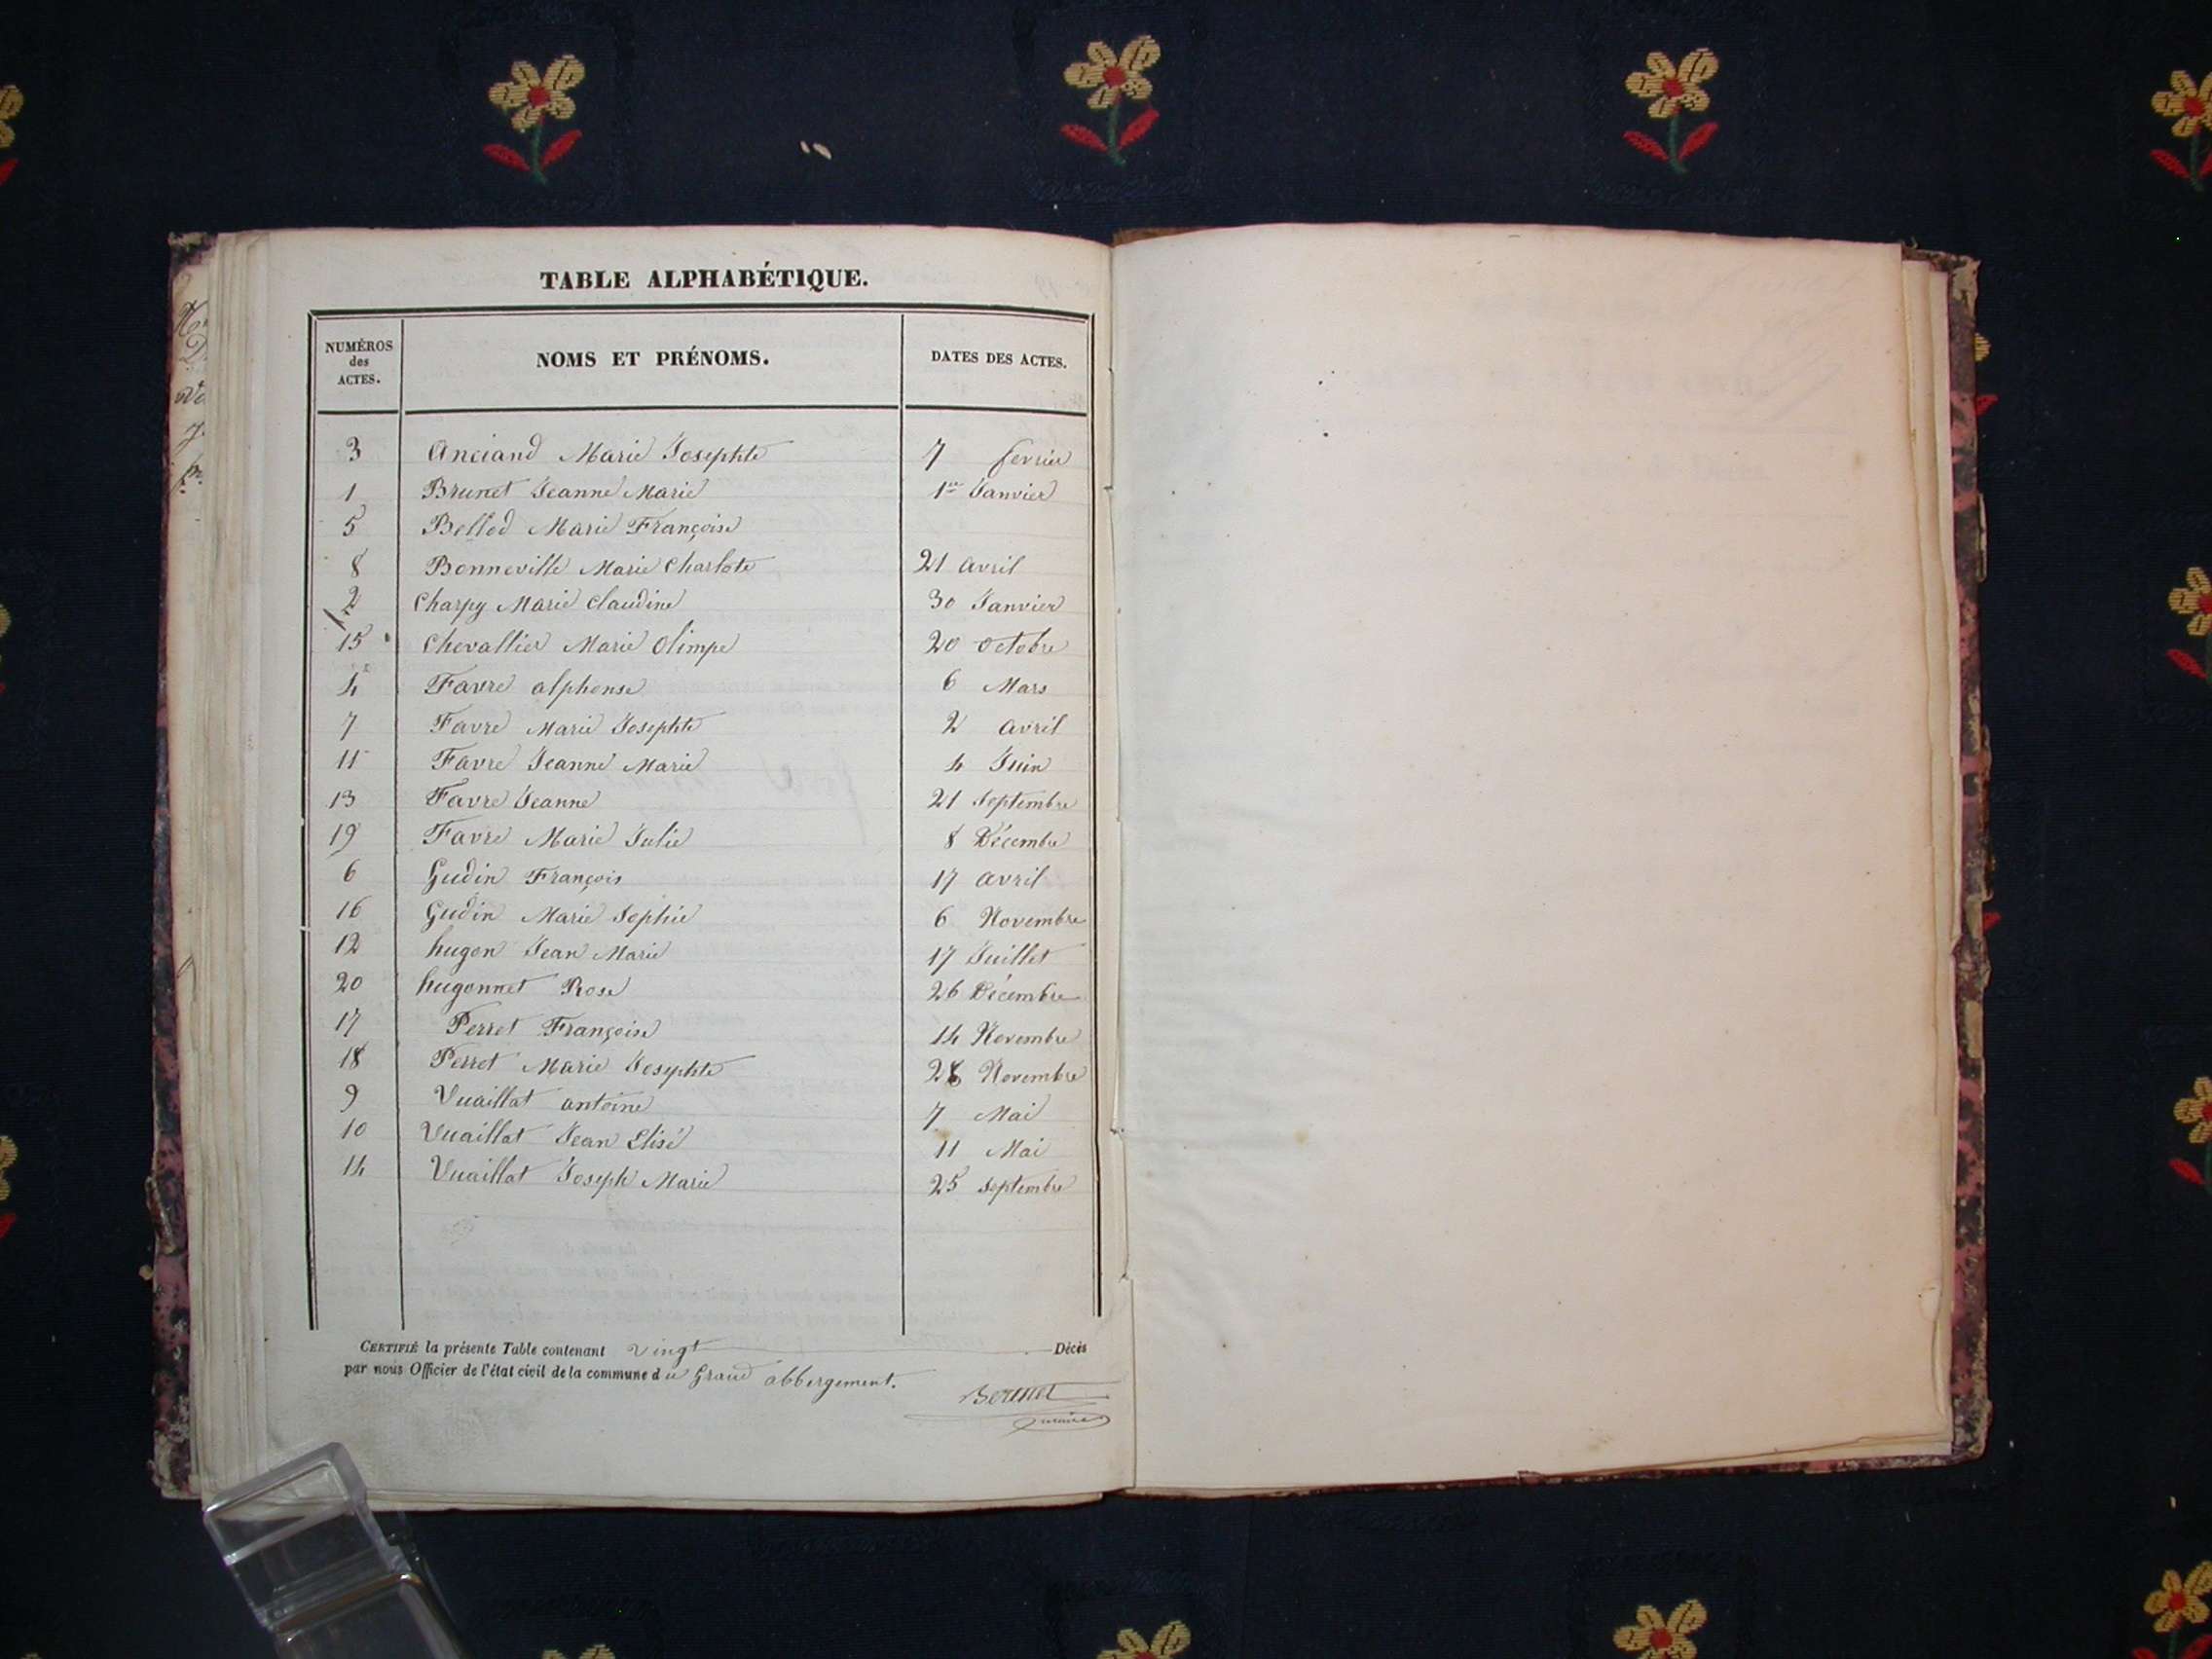 TABLE ALPHABÉTIQUE.
NUMÉROS des ACTES. NOMS ET PRÉNOMS. DATES DES ACTES.
3 Anciand Marie Josephte 7 fevrier
1 Brunet Jeanne Marie 1er Janvier
5 Bellod Marie Françoise
8 Bonneville Marie Charlote 21 avril
2 Charpy Marie Claudine 30 Janvier
15 Chevallier Marie Olimpe 20 octobre
4 Favre alphonse 6 Mars
7 Favre Marie Josephte 2 avril
11 Favre Jeanne Marie 4 Juin
13 Favre Jeanne 21 Septembre
19 Favre Marie Julie 8 Décembre
6 Gudin François 17 avril
16 Gudin Marie Sophie 6 Novembre
12 hugon Jean Marie 17 Juillet
20 hugonnet Rose 26 Décembre
17 Perret Françoise 14 Novembre
18 Perret Marie Josephte Novembre
9 Vuaillat antoine 7 Mai
10 Vuaillat Jean Elisé 11 Mai
14 Vuaillat Joseph Marie 25 Septembre
CERTIFIÉ la présente Table contenant vingt Décès
par nous Officier de l'état civil de la commune du Grand abbergement.